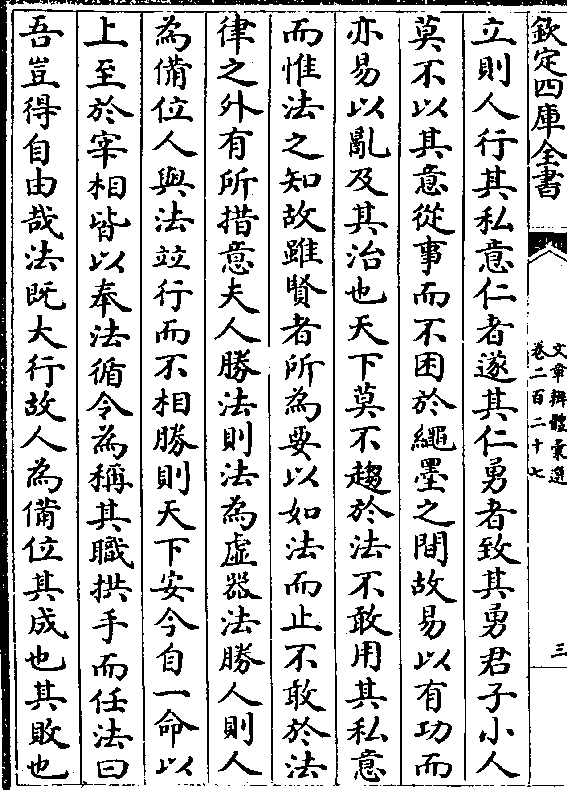 欽定四庫全書
文章辨體彙選
卷二百二十七
三
立則人行其私意仁者遂其仁勇者致其勇君子小人
莫不以其意從事而不困於繩墨之間故易以有功而
亦易以亂及其治也天下莫不趨於法不敢用其私意
而惟法之知故雖賢者所為要以如法而止不敢於法
律之外有所措意夫人勝法則法為虛器法勝人則人
為備位人與法竝行而不相勝則天下安今自一命以
上至於宰相皆以奉法循令為稱其職拱手而任法曰
吾豈得自由哉法既大行故人為備位其成也其敗也